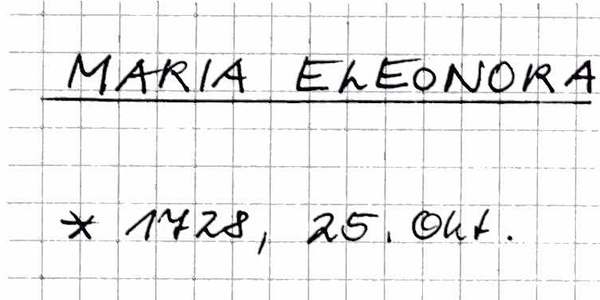 MARIA ELEONORA
* 1728, 25. Okt.